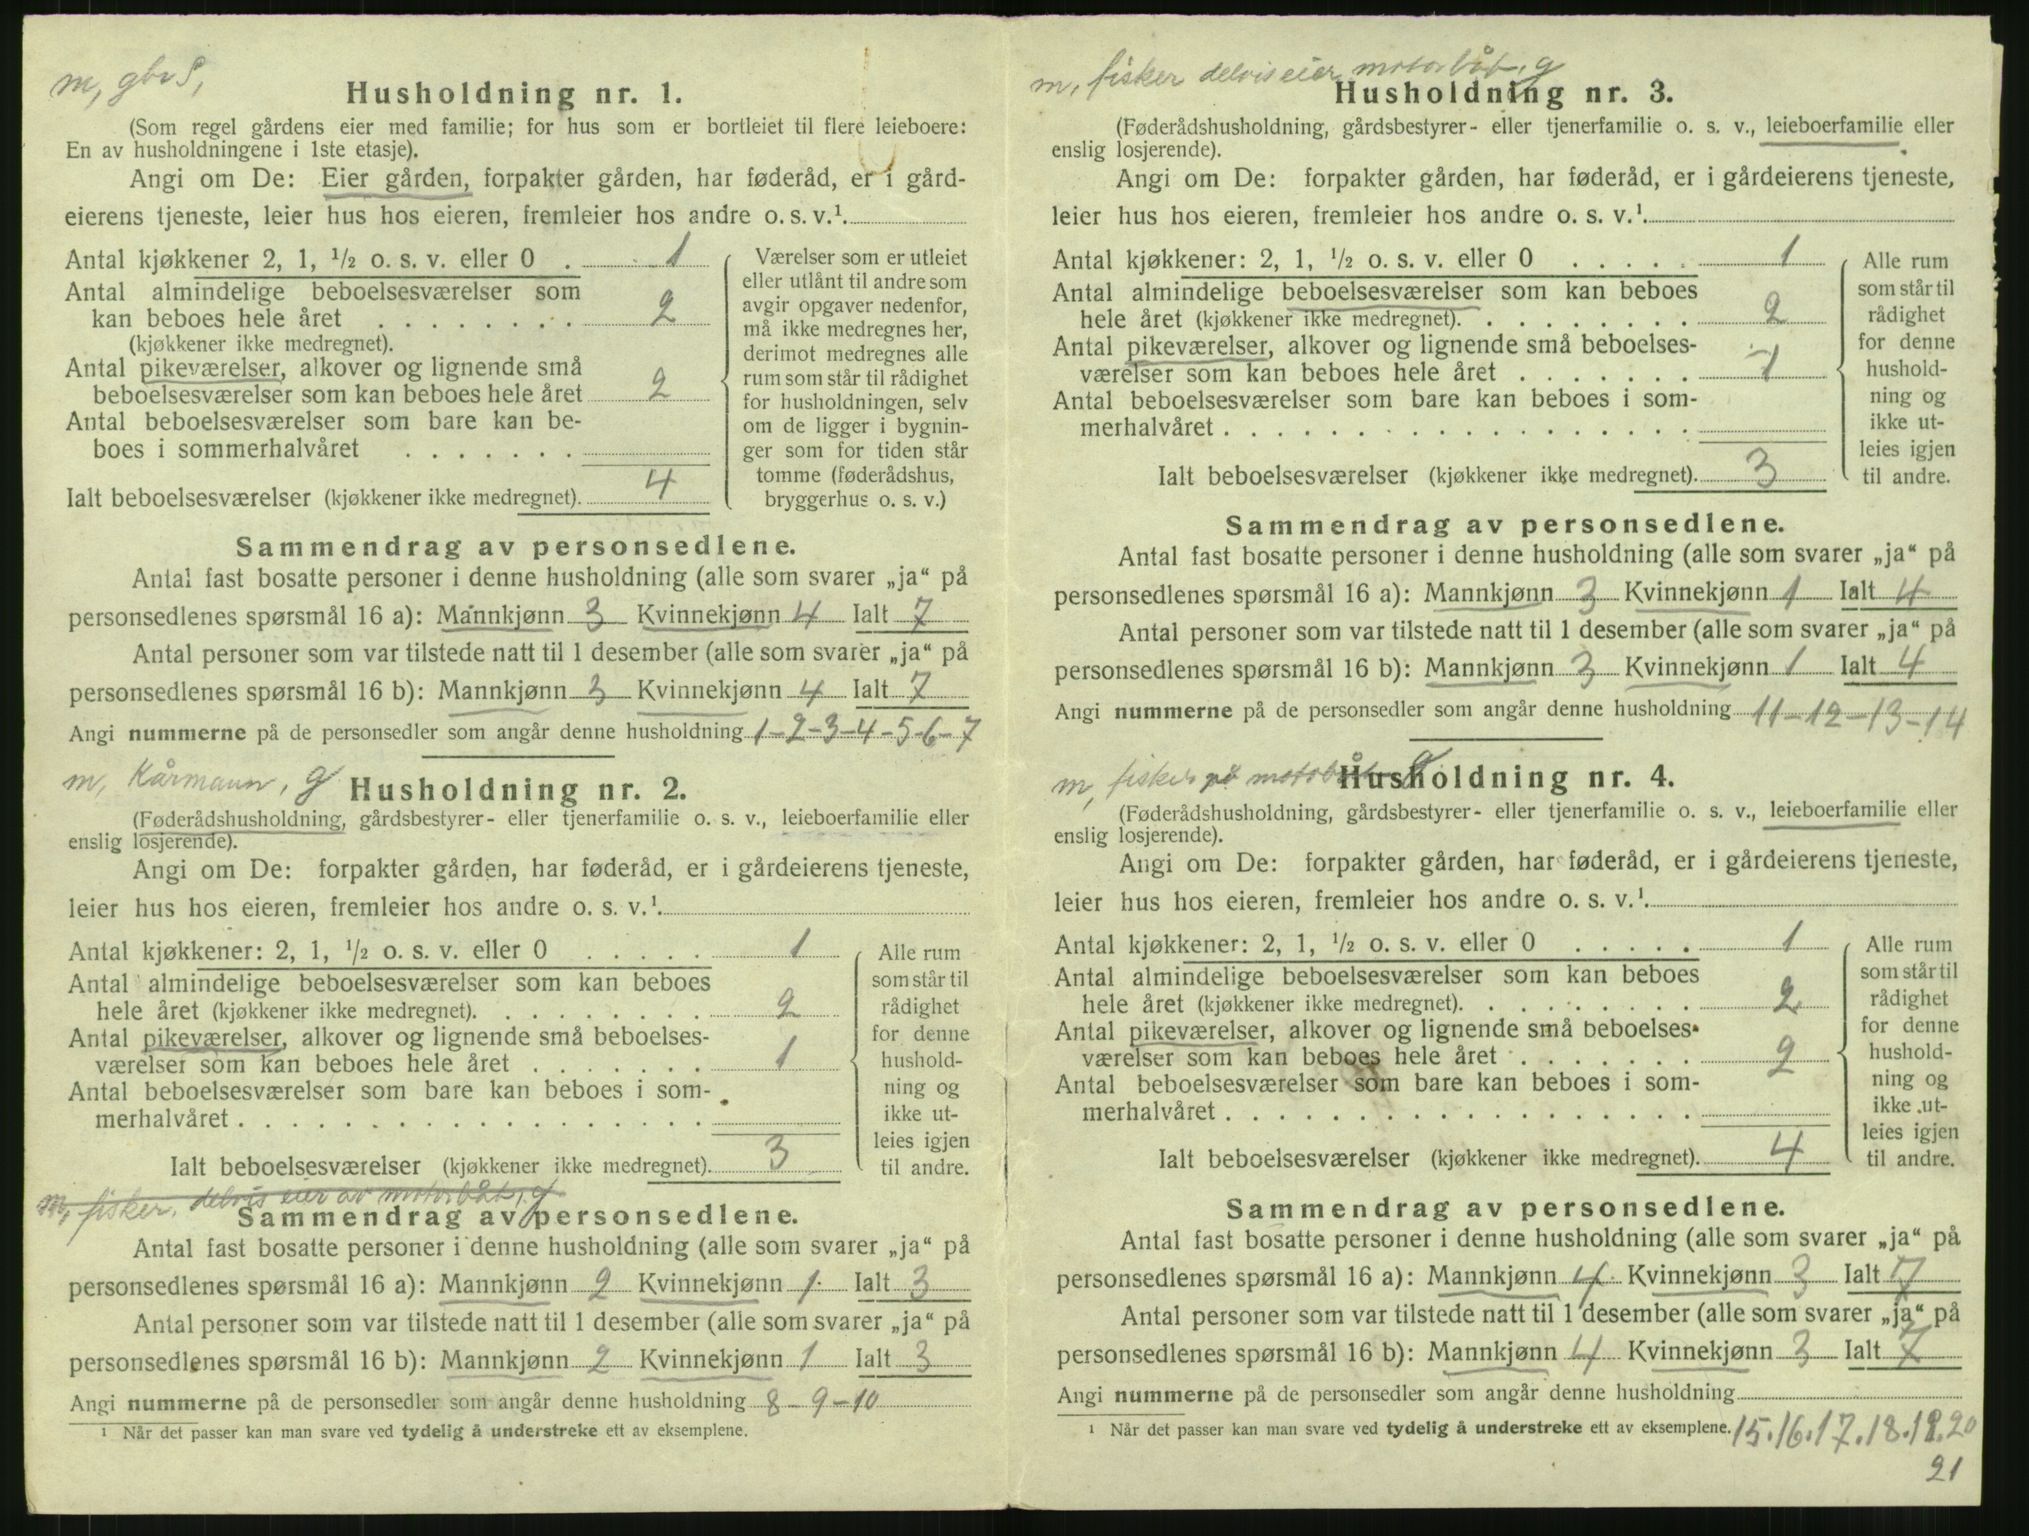 m, gbr S,
Husholdning nr. 1.
(Som regel gårdens eier med familie; for hus som er bortleiet til flere leieboere:
En av husholdningene i 1ste etasje).
Angi om De: Eier gården, forpakter gården, har føderåd, er i gård-
eierens tjeneste, leier hus hos eieren, fremleier hos andre o. s. v.¹
Antal kjøkkener 2, 1, ½ o. s. v. eller 0 . 1
Antal almindelige beboelsesværelser som
kan beboes hele året . . . . . . . . 2
(kjøkkener ikke medregnet).
Antal pikeværelser, alkover og lignende små
beboelsesværelser som kan beboes hele året 2
Antal beboelsesværelser som bare kan be-
boes i sommerhalvåret . . . . . . .
Ialt beboelsesværelser (kjøkkener ikke medregnet). 4
Værelser som er utleiet
eller utlånt til andre som
avgir opgaver nedenfor,
må ikke medregnes her,
derimot medregnes alle
rum som står til rådighet
for husholdningen, selv
om de ligger i bygnin-
ger som for tiden står
tomme (føderådshus,
bryggerhus o. s. v.)
Sammendrag av personsedlene.
Antal fast bosatte personer i denne husholdning (alle som svarer „ja“ på
personsedlenes spørsmål 16 a): Mannkjønn 3 Kvinnekjønn 4 Ialt 7
Antal personer som var tilstede natt til 1 desember (alle som svarer „ja“ på
personsedlenes spørsmål 16 b): Mannkjønn 3 Kvinnekjønn 4 Ialt 7
Angi nummerne på de personsedler som angår denne husholdning 1-2-3-4-5-6-7
m, Kårmann, g
Husholdning nr. 2.
(Føderådshusholdning, gårdsbestyrer- eller tjenerfamilie o. s. v., leieboerfamilie eller
enslig losjerende).
Angi om De: forpakter gården, har føderåd, er i gårdeierens tjeneste,
leier hus hos eieren, fremleier hos andre o. s. v.¹
Antal kjøkkener: 2, 1, ½ o. s. v. eller 0 . . . . . 1
Antal almindelige beboelsesværelser som kan beboes
hele året (kjøkkener ikke medregnet). . . . . . . . . 2
Antal pikeværelser, alkover og lignende små beboelses-
værelser som kan beboes hele året . . . . . . . 1
Antal beboelsesværelser som bare kan beboes i som-
merhalvåret . . . . . . . . . . . . . . . . . .
Ialt beboelsesværelser (kjøkkener ikke medregnet). 3
Alle rum
som står til
rådighet
for denne
hushold-
ning og
ikke ut-
leies igjen
til andre.
m, fisker, delvis eier av motorbåt, g
Sammendrag av personsedlene.
Antal fast bosatte personer i denne husholdning (alle som svarer „ja“ på
personsedlenes spørsmål 16 a): Mannkjønn 2 Kvinnekjønn 1 Ialt 3
Antal personer som var tilstede natt til 1 desember (alle som svarer „ja“ på
personsedlenes spørsmål 16 b): Mannkjønn 2 Kvinnekjønn 1 Ialt 3
Angi nummerne på de personsedler som angår denne husholdning 8-9-10
¹ Når det passer kan man svare ved tydelig å understreke ett av eksemplene.
m, fisker delvis eier motorbåt, g
Husholdning nr. 3.
(Føderådshusholdning, gårdsbestyrer- eller tjenerfamilie o. s. v., leieboerfamilie eller
enslig losjerende).
Angi om De: forpakter gården, har føderåd, er i gårdeierens tjeneste,
leier hus hos eieren, fremleier hos andre o. s. v.¹
Antal kjøkkener: 2, 1, ½ o. s. v. eller 0 . . . . . 1
Antal almindelige beboelsesværelser som kan beboes
hele året (kjøkkener ikke medregnet). . . . . . . . . 2
Antal pikeværelser, alkover og lignende små beboelses-
værelser som kan beboes hele året . . . . . . . 1
Antal beboelsesværelser som bare kan beboes i som-
merhalvåret . . . . . . . . . . . . . . . . . .
Ialt beboelsesværelser (kjøkkener ikke medregnet). 3
Alle rum
som står til
rådighet
for denne
hushold-
ning og
ikke ut-
leies igjen
til andre.
Sammendrag av personsedlene.
Antal fast bosatte personer i denne husholdning (alle som svarer „ja“ på
personsedlenes spørsmål 16 a): Mannkjønn 3 Kvinnekjønn 1 Ialt 4
Antal personer som var tilstede natt til 1 desember (alle som svarer „ja“ på
personsedlenes spørsmål 16 b): Mannkjønn 3 Kvinnekjønn 1 Ialt 4
Angi nummerne på de personsedler som angår denne husholdning 11-12-13-14
m, fisker på motorbåt g
Husholdning nr. 4.
(Føderådshusholdning, gårdsbestyrer- eller tjenerfamilie o. s. v., leieboerfamilie eller
enslig losjerende).
Angi om De: forpakter gården, har føderåd, er i gårdeierens tjeneste,
leier hus hos eieren, fremleier hos andre o. s. v.¹
Antal kjøkkener: 2, 1, ½ o. s. v. eller 0 . . . . . 1
Antal almindelige beboelsesværelser som kan beboes
hele året (kjøkkener ikke medregnet). . . . . . . . . 2
Antal pikeværelser, alkover og lignende små beboelses-
værelser som kan beboes hele året . . . . . . . 2
Antal beboelsesværelser som bare kan beboes i som-
merhalvåret . . . . . . . . . . . . . . . . . .
Ialt beboelsesværelser (kjøkkener ikke medregnet). 4
Alle rum
som står til
rådighet
for denne
hushold-
ning og
ikke ut-
leies igjen
til andre.
Sammendrag av personsedlene.
Antal fast bosatte personer i denne husholdning (alle som svarer „ja“ på
personsedlenes spørsmål 16 a): Mannkjønn 4 Kvinnekjønn 3 Ialt 7
Antal personer som var tilstede natt til 1 desember (alle som svarer „ja“ på
personsedlenes spørsmål 16 b): Mannkjønn 4 Kvinnekjønn 3 Ialt 7
Angi nummerne på de personsedler som angår denne husholdning
¹ Når det passer kan man svare ved tydelig å understreke ett av eksemplene. 15.16.17.18.19.20
21